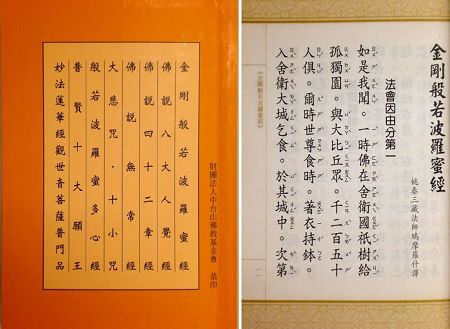 金剛般若波羅蜜經
佛說八大人覺經
佛說四十二章經
佛說無常經
大悲咒．十小咒
般若波羅蜜多心經
普賢十大願王
妙法蓮華經觀世音菩薩普門品
財團法人中台山佛教基金會 恭印
金剛般若波羅蜜經
姚秦三藏法師鳩摩羅什譯
法會因由分第一
如是我聞。一時佛在舍衛國祇樹給
孤獨園。與大比丘眾。千二百五十
人俱。爾時世尊食時。著衣持鉢。
入舍衛大城乞食。於其城中。次第
《金剛般若波羅蜜經》